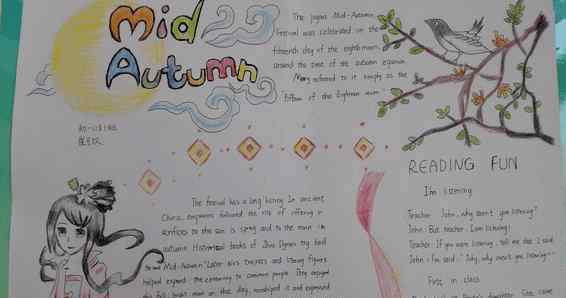 Mid
Autumn
The joyous Mid-Autumn
Festival was celebrated on the
fifteenth day of the eighth moon,
around the time of the autumn equinox.
Many referred to it simply as the
"Fifteen of the Eighth Moon".
The festival has a long history. In ancient
China, emperors followed the rite of offering
sacrifices to the sun in spring and to the moon in
autumn. Historical books of Zhou Dynasty
"Mid-Autumn". Later
helped expand the ceremony to common people. They enjoyed
the full, bright moon on that day, worshiped it and expressed
READING FUN
I'm listening
Teacher: John, why aren't you listening?
John: But teacher, I am listening!
Teacher: If you were listening, tell me what I said
John: You said: "John, why aren't you listening
First in class